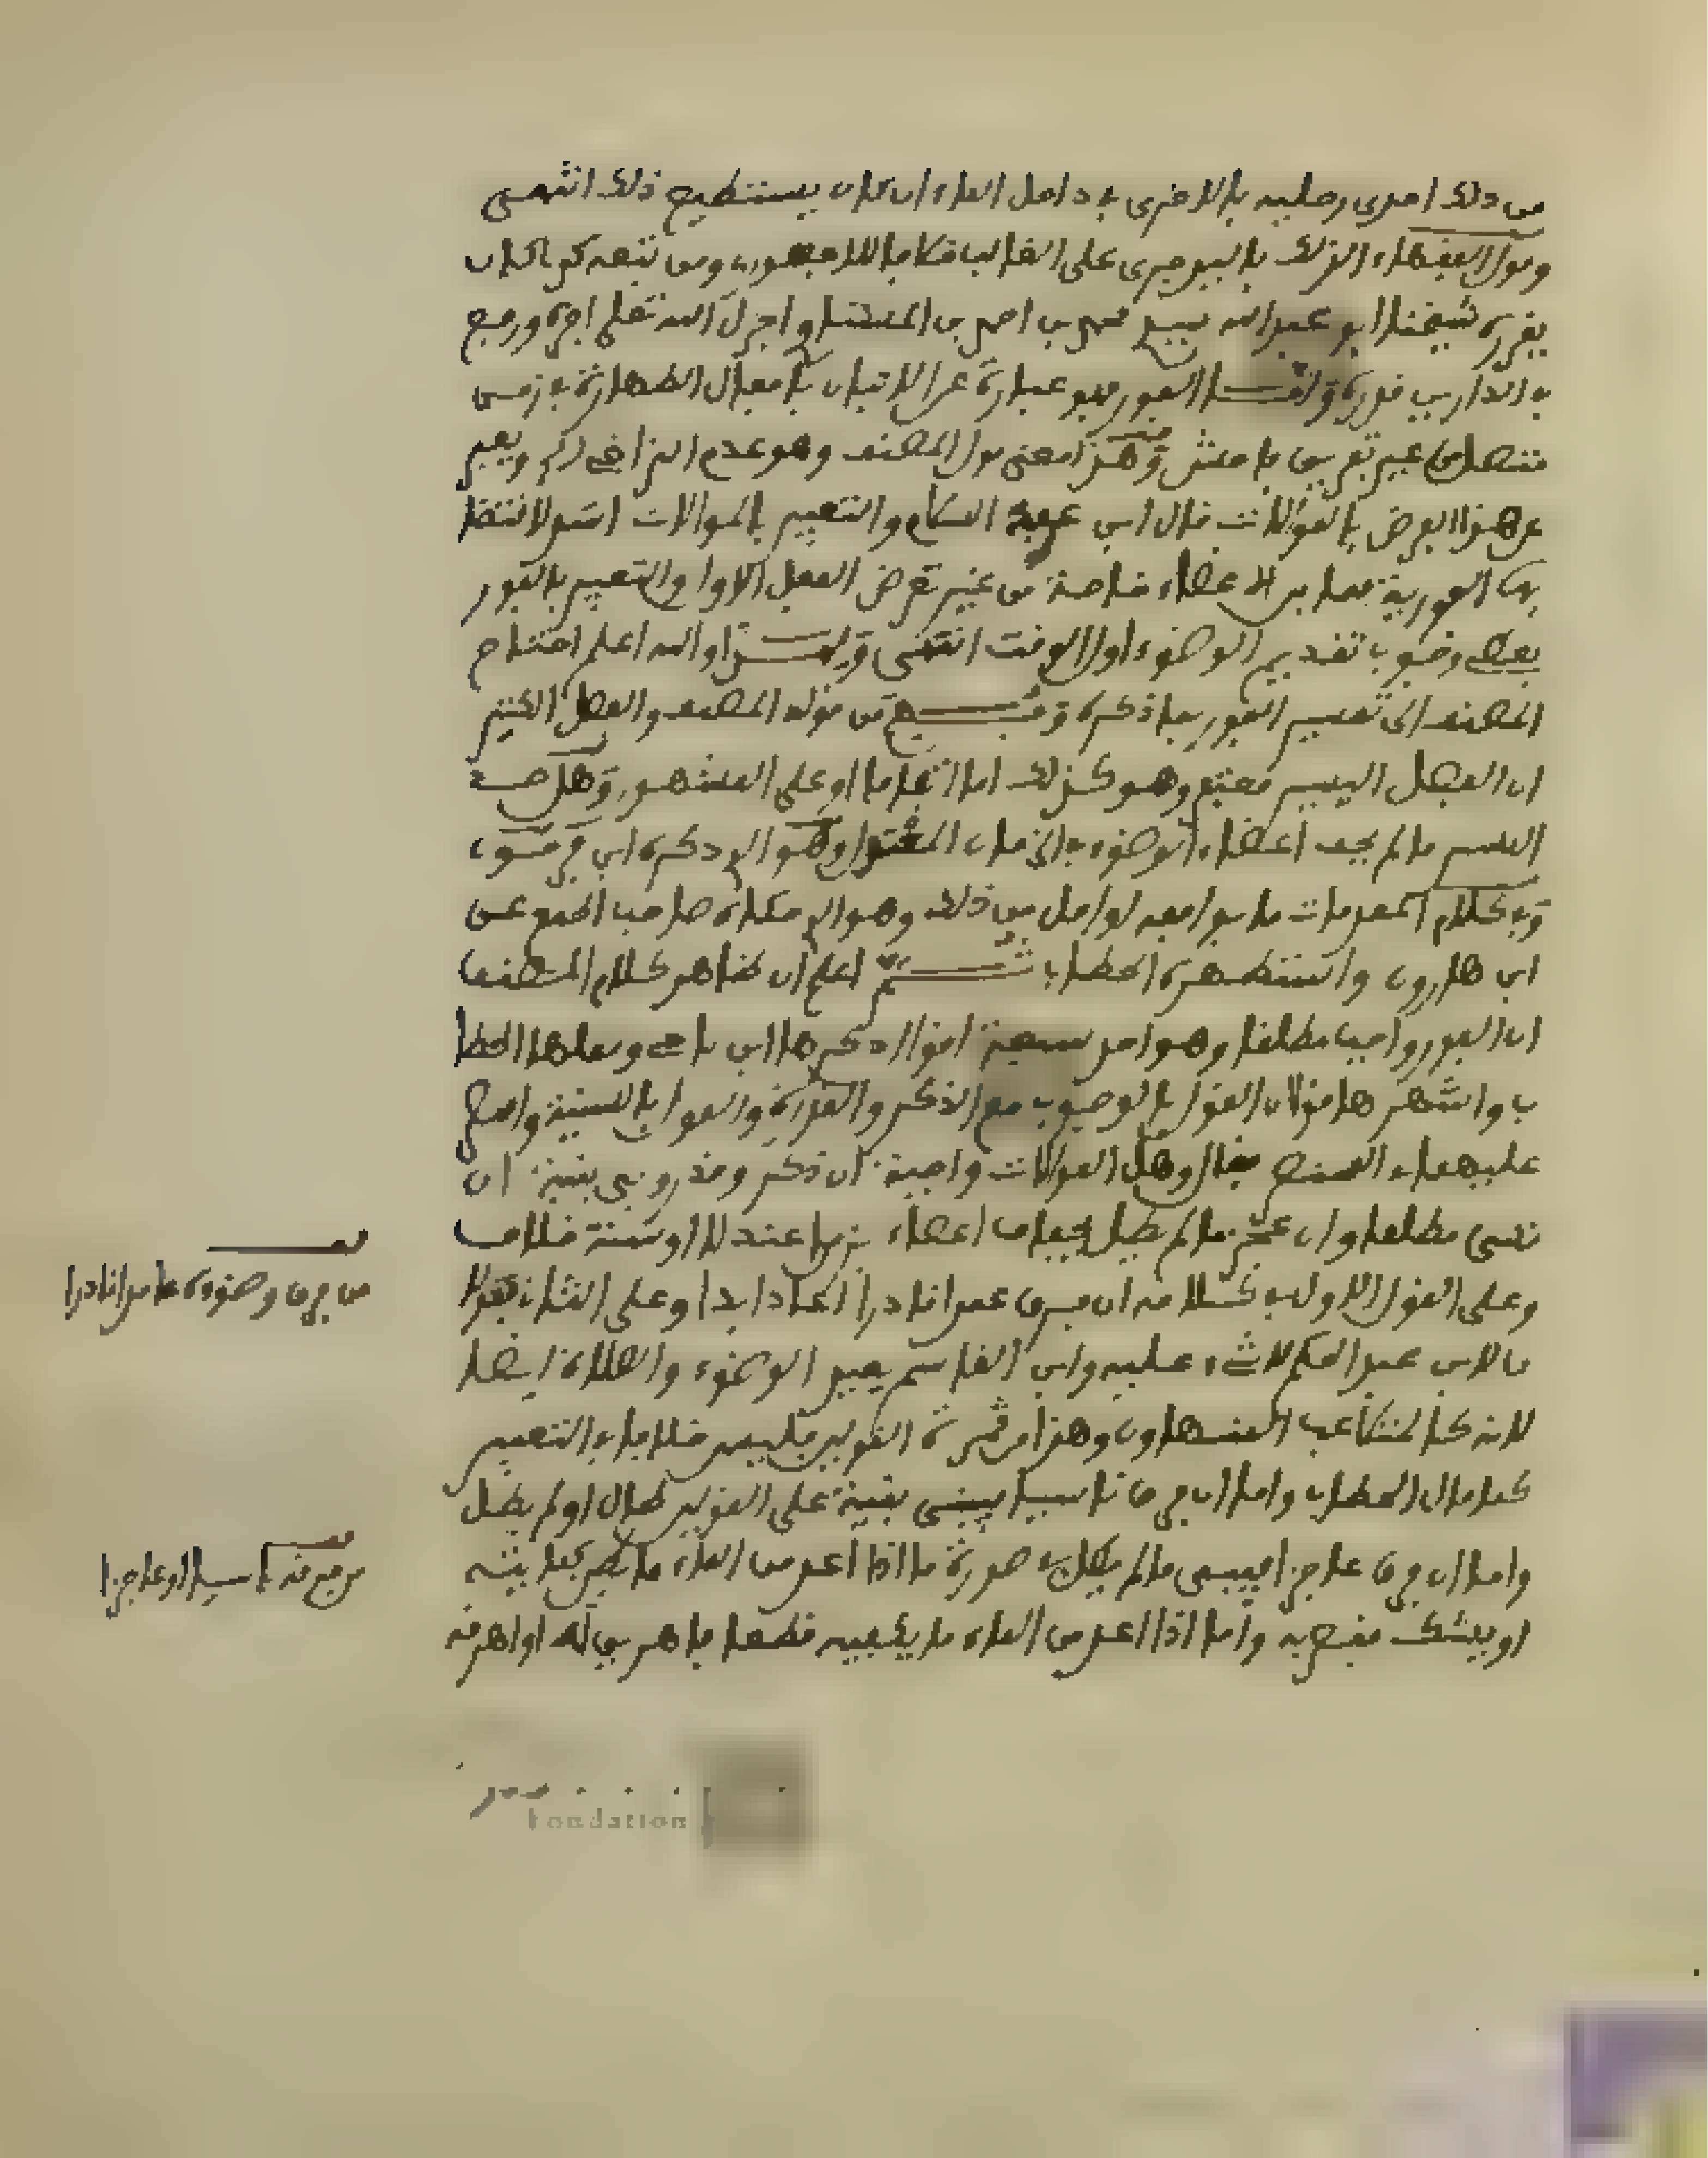 من ذلك احدى رجليه بالاخرى في داخل الماء ان كان يستطيع ذلك انتهى
وقول الفقهاء الدلك باليد جرى على الغالب فلا مفهوم له ومن تتبعه كذا كان
يقرره شيخنا ابو عبد الله سيدي محمد بن احمد بن المسناو اجزل الله تعلى اجره ورفع
في الدارين قدره واما الفور فهو عبارة عن الاتيان بافعال الطهارة في زمن
متصل من غير تفريق فاحش وهذا معنى قول المصنف وهو عدم التراخي ويعبر
عن هذا الفرض بالموالات قال ابن عبد السلام والتعبير بالموالات
بها الفورية فيما بين الاعضاء خاصة من غير تعرض الفعل الاول والتعبير بالفور
يعطى وجوب تقديم الوضوء اول الوقت انتهى ولهذا والله اعلم احتاج
المصنف الى تفسير الفور بما ذكره من قوله المصنف والفصل الكثير
ان الفصل اليسير مغتفر وهو كذلك اما اتفاقا او على المشهور وهل حد
اليسير ما لم تجف اعضاء الوضوء في الزمان المعتدل وهو الذي ذكره ابن فرحون
وفي كلام المقدمات ما يوافقه او اقل من ذلك وهو الذي حكاه صاحب الجمع عن
ابن هارون واستظهره الحطاب ثم اعلم ان ظاهر كلام المصنف
ان الفور واجب مطلقا وهو احد سبعة اقوال ذكرها ابن ناجي ونقلها الحطا
ب واشهرها قولان القول بالوجوب مع الذكر والقدرة والقول بالسنية واقتصر
عليهما في المختصر فقال وهل الموالات واجبة ان ذكر وقدر وبنى بنية ان
نسي مطلقا وان عجز ما لم يطل بجفاف اعضاء بزمن اعتدلا او سنة خلاف
وعلى القول الاول في كلامه ان فرق عمدا قادرا اعاد ابدا وعلى الثاني قولا
ن لابن عبد الحكم لا شيء عليه وابن القاسم يعيد الوضوء والصلاة ايضا
لانه كالمتلاعب المتهاون وهذا من ثمرة القولين فليس خلافا في التعبير
كما قال الحطاب واما ان فرق ناسيا فيبنى بنية على القولين طال او لم يطل
واما ان فرق عاجزا فيبنى ما لم يطل في صورة ما اذا اعد من الماء ما يظن كفايته
او يشك فقصر به واما اذا اعد من الماء ما يكفيه قطعا فاهريق له او اهرقه
من فرق وضوءه عامدا قادرا
من فرقه ناسيا او عاجزا
Fondation